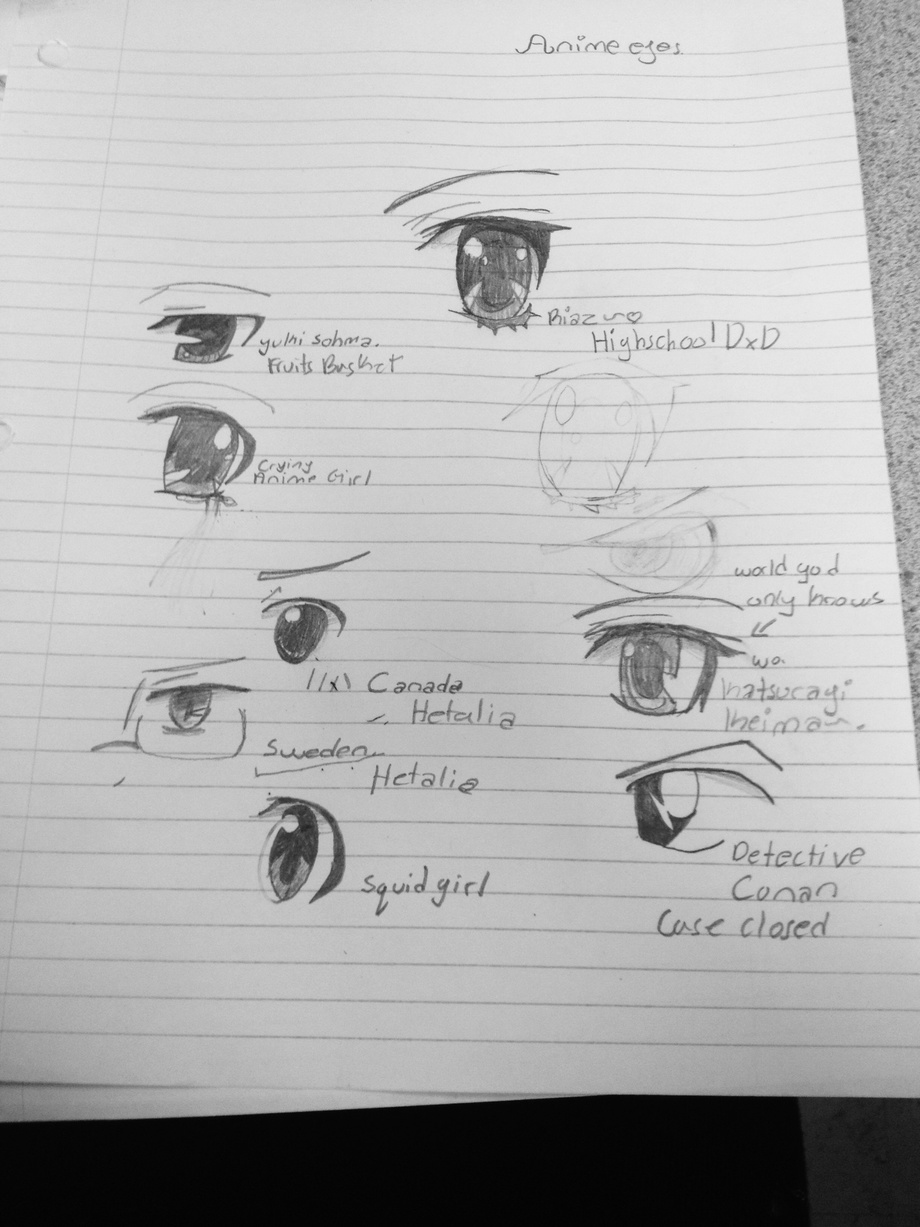 Anime eyes
Riaz ~♡
Highschool DxD
yuki sohma.
Fruits Basket
Crying
Anime Girl
world god
only knows
wo.
Katsuragi
Keima~.
Canada
Hetalia
Sweden
Hetalia
Squid girl
Detective
Conan
Case closed